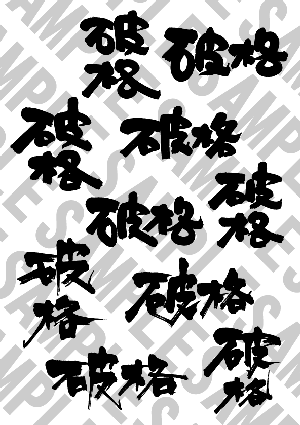 破格
破格
破格
破格
破格
破格
破格
破格
破格
破格
SAMPLES